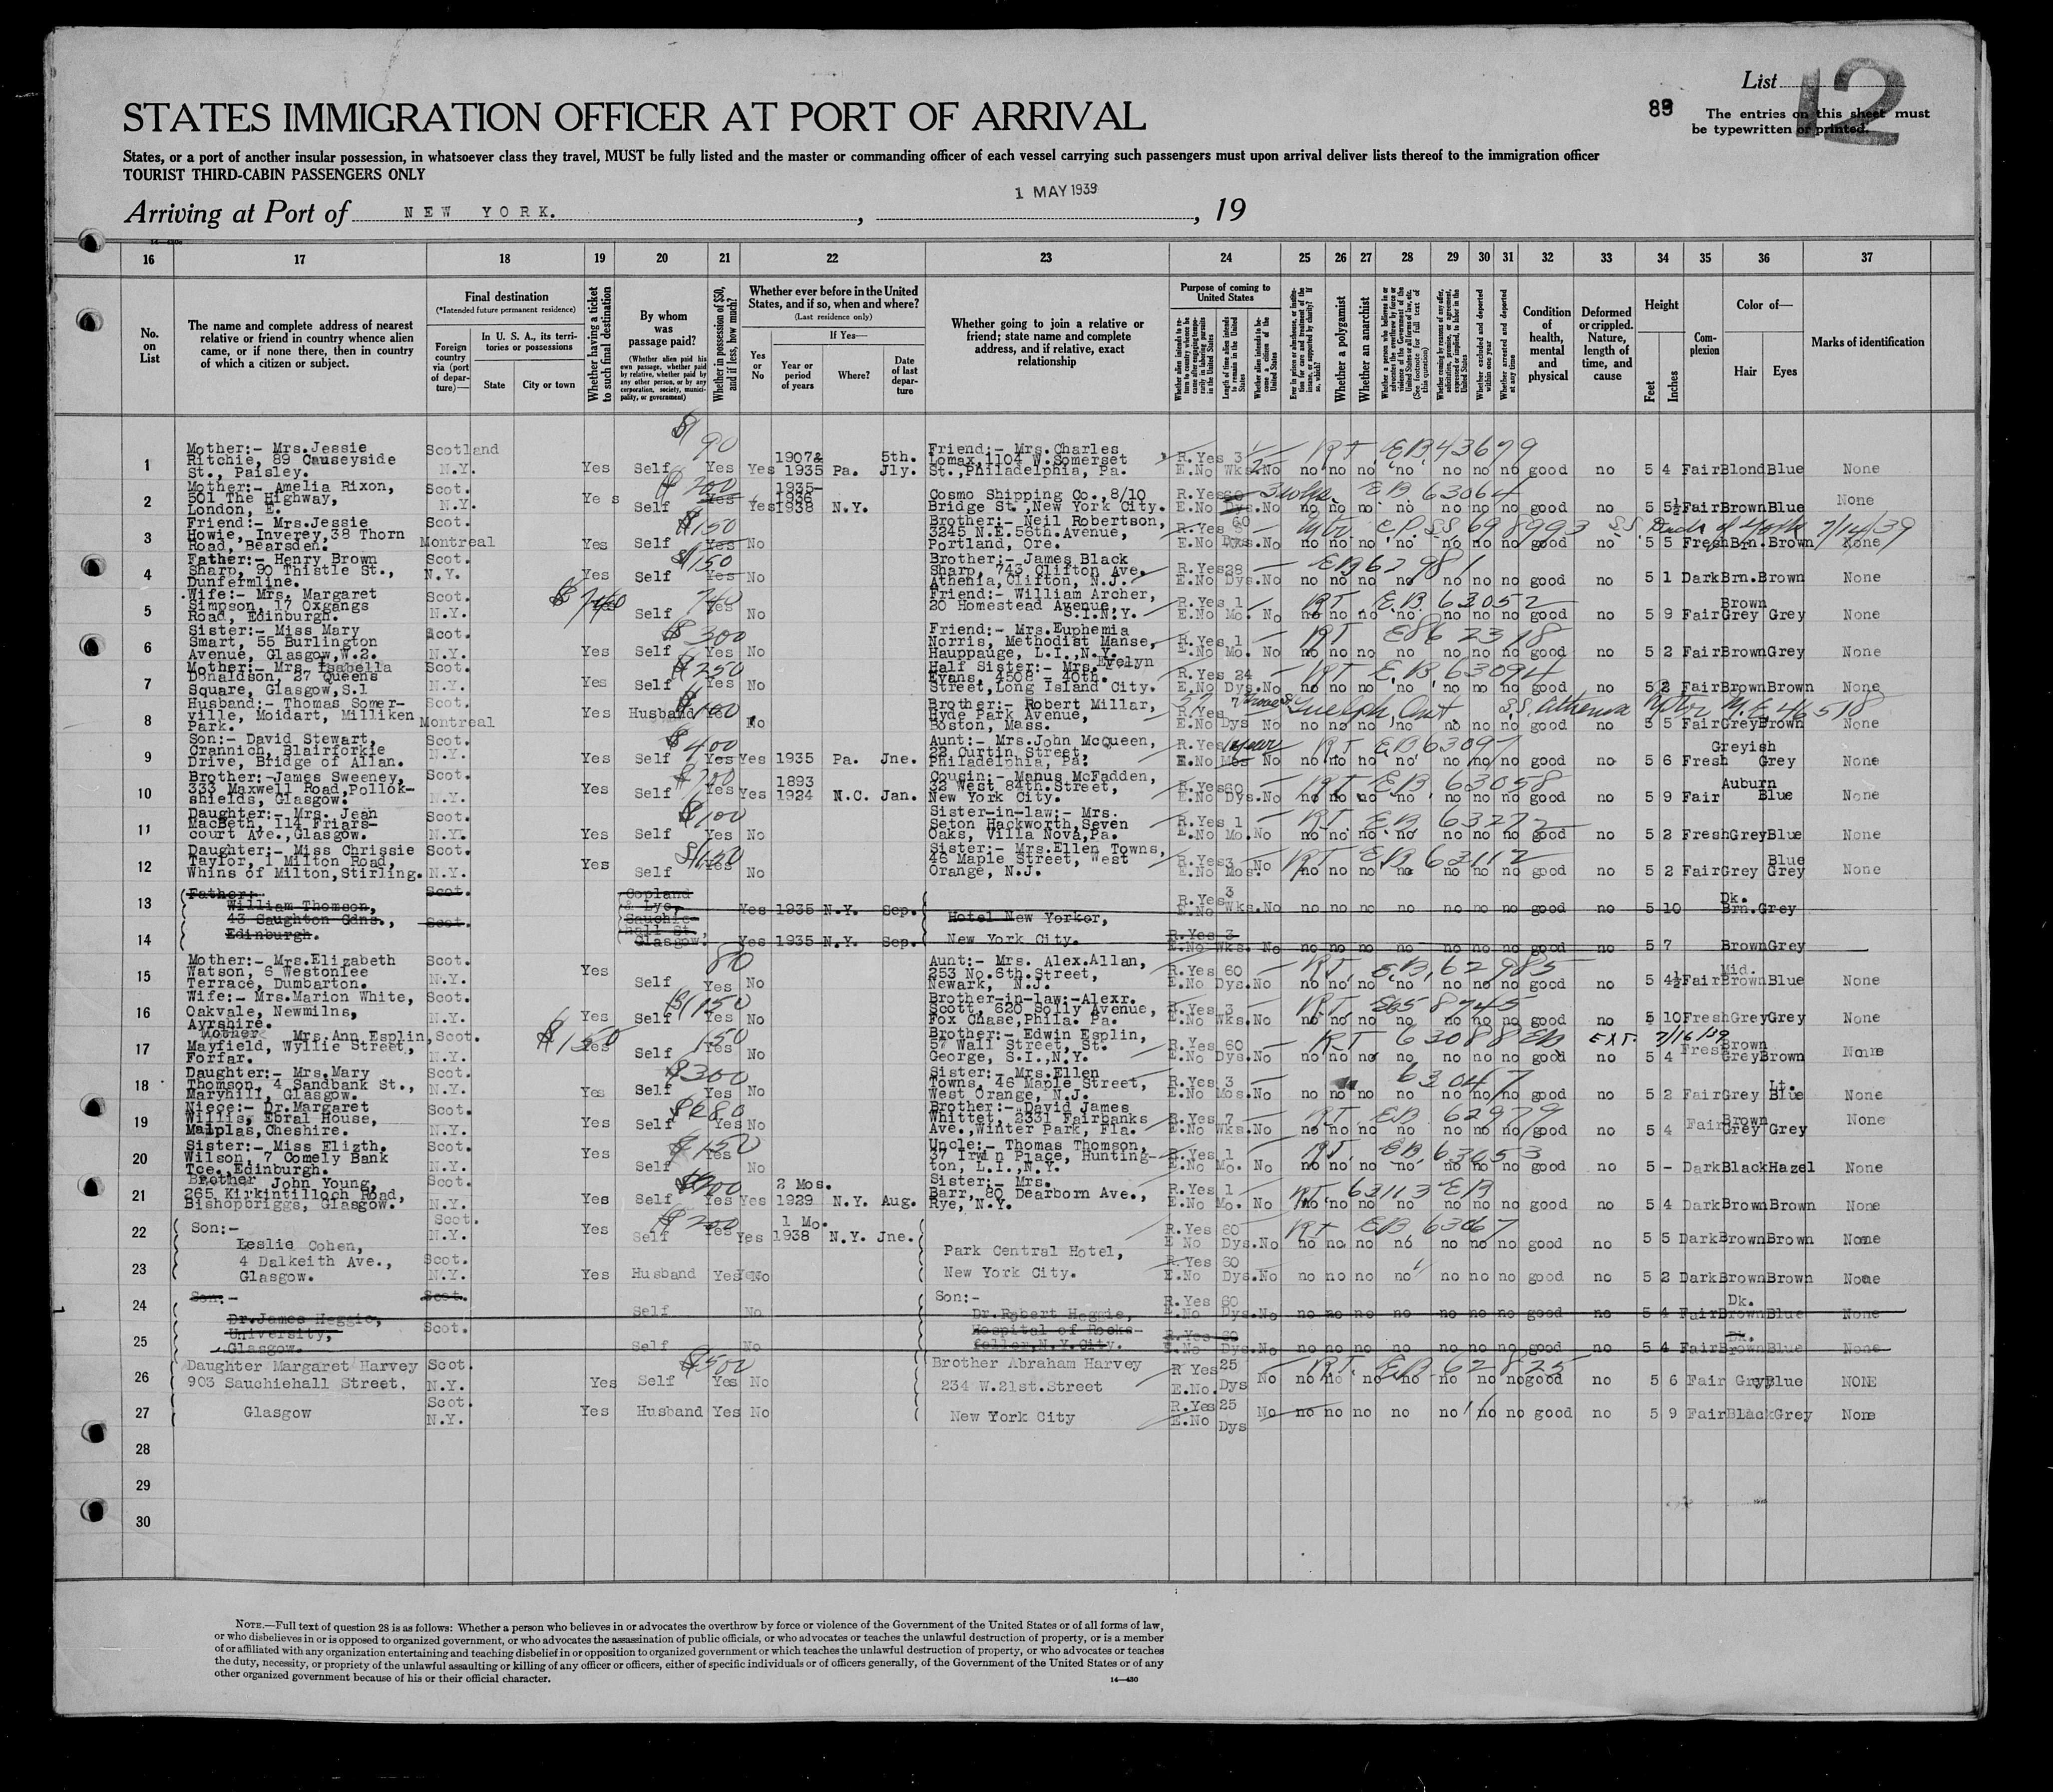 List 12
89
The entries on this sheet must
be typewritten or printed.
STATES IMMIGRATION OFFICER AT PORT OF ARRIVAL
States, or a port of another insular possession, in whatsoever class they travel, MUST be fully listed and the master or commanding officer of each vessel carrying such passengers must upon arrival deliver lists thereof to the immigration officer
TOURIST THIRD-CABIN PASSENGERS ONLY
1 MAY 1939
Arriving at Port of NEW YORK. , , 19
16 17 18 19 20 21 22 23 24 25 26 27 28 29 30 31 32 33 34 35 36 37
No. on List
The name and complete address of nearest relative or friend in country whence alien came, or if none there, then in country of which a citizen or subject.
Final destination
(*Intended future permanent residence)
Foreign country via (port of departure)—
In U. S. A., its territories or possessions
State City or town
Whether having a ticket to such final destination
By whom was passage paid?
(Whether alien paid his own passage, whether paid by relative, whether paid by any other person, or by any corporation, society, municipality, or government)
Whether in possession of $50, and if less, how much?
Whether ever before in the United States, and if so, when and where?
(Last residence only)
Yes or No
If Yes—
Year or period of years Where? Date of last departure
Whether going to join a relative or friend; state name and complete address, and if relative, exact relationship
Purpose of coming to United States
Whether a polygamist
Whether an anarchist
Condition of health, mental and physical
Deformed or crippled. Nature, length of time, and cause
Height
Feet Inches
Complexion
Color of—
Hair Eyes
Marks of identification
1 Mother:- Mrs.Jessie Ritchie, 89 Causeyside St., Paisley. Scotland N.Y. Yes Self $90 Yes Yes 1907& 1935 Pa. 5th. Jly. Friend:- Mrs.Charles Lomax,1104 W.Somerset St.,Philadelphia, Pa. R.Yes 3 E.No Wks. No RT EB43679 no no no no no no no good no 5 4 Fair Blond Blue None
2 Mother:- Amelia Rixon, 501 The Highway, London, E. Scot. N.Y. Yes Self $200 Yes Yes 1935-1936 1938 N.Y. Cosmo Shipping Co.,8/10 Bridge St.,New York City. R.Yes 60 E.No Dys. No EB. 63064 no no no no no no no good no 5 5½ Fair Brown Blue None
3 Friend:- Mrs.Jessie Howie, Inverey,38 Thorn Road, Bearsden. Scot. Montreal Yes Self $150 Yes No Brother:- Neil Robertson, 3245 N.E.56th.Avenue, Portland, Ore. R.Yes 60 E.No Dys. No no no no no no no no good no 5 5 Fresh Brn. Brown None S.S. Duch of York 7/14/39
4 Father:- Henry Brown Sharp, 90 Thistle St., Dunfermline. Scot. N.Y. Yes Self $150 Yes No Brother:- James Black Sharp, 743 Clifton Ave. Athenia,Clifton, N.J. R.Yes 28 E.No Dys. No EB 62981 no no no no no no no good no 5 1 Dark Brn. Brown None
5 Wife:- Mrs. Margaret Simpson, 17 Oxgangs Road, Edinburgh. Scot. N.Y. $740 Self 740 Yes No Friend:- William Archer, 20 Homestead Avenue, S.I.N.Y. R.Yes 1 E.No Mo. No RT E.B. 63052 no no no no no no no good no 5 9 Fair Brown Grey Grey None
6 Sister:- Miss Mary Smart, 55 Burlington Avenue, Glasgow,W.2. Scot. N.Y. Yes Self $300 Yes No Friend:- Mrs.Euphemia Norris, Methodist Manse, Hauppauge, L.I.,N.Y. R.Yes 1 E.No Mo. No RT EB62318 no no no no no no no good no 5 2 Fair Brown Grey None
7 Mother:- Mrs. Isabella Donaldson, 27 Queens Square, Glasgow,S.1 Scot. N.Y. Yes Self $250 Yes No Half Sister:- Mrs.Evelyn Evans, 4508 - 40th. Street,Long Island City. R.Yes 24 E.No Dys. No RT E.B. 63094 no no no no no no no good no 5 2 Fair Brown Brown None
8 Husband:- Thomas Somerville, Moidart, Milliken Park. Scot. Montreal Yes Husband $100 Yes No Brother:- Robert Millar, Hyde Park Avenue, Boston, Mass. R.Yes 7 E.No Dys No Guelph, Ont S.S. Athenia no no no no no no no good no 5 5 Fair Grey Brown None
9 Son:- David Stewart, Crannich, Blairforkie Drive, Bridge of Allan. Scot. N.Y. Yes Self $400 Yes Yes 1935 Pa. Jne. Aunt:- Mrs.John McQueen, 22 Curtin Street, Philadelphia, Pa. R.Yes 1 year E.No Mos No RT EB63097 no no no no no no no good no 5 6 Fresh Greyish Grey None
10 Brother:-James Sweeney, 333 Maxwell Road,Pollokshields, Glasgow. Scot. N.Y. Yes Self $200 Yes Yes 1893 1924 N.C. Jan. Cousin:- Manus McFadden, 32 West 84th.Street, New York City. R.Yes 60 E.No Dys. No RT EB. 63058 no no no no no no no good no 5 9 Fair Auburn Blue None
11 Daughter:- Mrs. Jean MacBeth, 114 Friarscourt Ave.,Glasgow. Scot. N.Y. Yes Self $100 Yes No Sister-in-law:- Mrs. Seton Hackworth,Seven Oaks, Villa Nova,Pa. R.Yes 1 E.No Mo. No RT EB 63272 no no no no no no no good no 5 2 Fresh Grey Blue None
12 Daughter:- Miss Chrissie Taylor, 1 Milton Road, Whins of Milton,Stirling. Scot. N.Y. Yes Self $150 Yes No Sister:- Mrs.Ellen Towns, 46 Maple Street, West Orange, N.J. R.Yes 3 E.No Mos. No RT EB 63112 no no no no no no no good no 5 2 Fair Grey Blue Grey None
13 Father:- William Thomson, 43 Saughton Gdns., Edinburgh. Scot. Copland & Lye, Sauchiehall St. Glasgow. Yes 1935 N.Y. Sep. Hotel New Yorker, R.Yes 3 E.No Wks. No no no no no no no no good no 5 10 Dk. Brn. Grey
14 Scot. Yes 1935 N.Y. Sep. New York City. R.Yes 3 E.No Wks. No no no no no no no no good no 5 7 Brown Grey
15 Mother:- Mrs.Elizabeth Watson, 6 Westonlee Terrace, Dumbarton. Scot. N.Y. Yes Self 80 Yes No Aunt:- Mrs. Alex.Allan, 253 No.6th.Street, Newark, N.J. R.Yes 60 E.No Dys. No RT. E.B. 62985 no no no no no no no good no 5 4½ Fair Mid. Brown Blue None
16 Wife:- Mrs.Marion White, Oakvale, Newmilns, Ayrshire. Scot. N.Y. Yes Self $150 Yes No Brother-in-law:-Alexr. Scott, 620 Solly Avenue, Fox Chase,Phila. Pa. R.Yes 3 E.No Wks. No RT. no no no no no no no good no 5 10 Fresh Grey Grey None
17 Mother Mrs.Ann Esplin, Mayfield, Wyllie Street, Forfar. Scot. N.Y. $150 Yes Self 150 Yes No Brother:- Edwin Esplin, 57 Wall Street, St. George, S.I.,N.Y. R.Yes 60 E.No Dys. No RT 63088 EB EXT. 7/16/39 no no no no no no no good no 5 4 Fresh Brown Grey Brown None
18 Daughter:- Mrs.Mary Thomson, 4 Sandbank St., Maryhill, Glasgow. Scot. N.Y. Yes Self $300 Yes No Sister:- Mrs.Ellen Towns, 46 Maple Street, West Orange, N.J. R.Yes 3 E.No Mos. No 63047 no no no no no no no good no 5 2 Fair Grey Lt. Blue None
19 Niece:- Dr.Margaret Willis, Ebral House, Malplas,Cheshire. Scot. N.Y. Yes Self $280 Yes No Brother:- David James Whittet, 2331 Fairbanks Ave.,Winter Park, Fla. R.Yes 7 E.No Wks. No RT. EB 62979 no no no no no no no good no 5 4 Fair Brown Grey Grey None
20 Sister:- Miss Elizth. Wilson, 7 Comely Bank Tce.,Edinburgh. Scot. N.Y. Yes Self $150 Yes No Uncle:- Thomas Thomson, 37 Irwin Place, Huntington, L.I.,N.Y. R.Yes 1 E.No Mo. No RT. EB. 63053 no no no no no no no good no 5 - Dark Black Hazel None
21 Brother John Young, 265 Kirkintilloch Road, Bishopbriggs, Glasgow. Scot. N.Y. Yes Self $300 Yes Yes 2 Mos. 1929 N.Y. Aug. Sister:- Mrs. Barr, 80 Dearborn Ave., Rye, N.Y. R.Yes 1 E.No Mo. No RT 63113 EB no no no no no no no good no 5 4 Dark Brown Brown None
22 Son:- Leslie Cohen, 4 Dalkeith Ave., Glasgow. Scot. N.Y. Yes Self $200 Yes Yes 1 Mo. 1938 N.Y. Jne. Park Central Hotel, R.Yes 60 E No Dys. No RT EB 63067 no no no no no no no good no 5 5 Dark Brown Brown None
23 Scot. N.Y. Yes Husband Yes No New York City. R.Yes 60 E.No Dys. No no no no no no no no good no 5 2 Dark Brown Brown None
24 Son:- Dr.James Heggie, University, Glasgow. Scot. Self No Son:- Dr.Robert Heggie, Hospital of Rockefeller,N.Y.City. R.Yes 60 E.No Dys. No no no no no no no no good no 5 4 Fair Dk. Brown Blue None
25 Scot. Self No R.Yes 60 E.No Dys. No no no no no no no no good no 5 4 Fair Dk. Brown Blue None
26 Daughter Margaret Harvey 903 Sauchiehall Street, Scot. N.Y. Yes Self $500 Yes No Brother Abraham Harvey 234 W.21st.Street R Yes 25 E.No. Dys No RT. EB 62825 no no no no no no no good no 5 6 Fair Grey Blue NONE
27 Glasgow Scot. N.Y. Yes Husband Yes No New York City R.Yes 25 E.No Dys No no no no no no no no good no 5 9 Fair Black Grey None
28
29
30
NOTE.—Full text of question 28 is as follows: Whether a person who believes in or advocates the overthrow by force or violence of the Government of the United States or of all forms of law,
or who disbelieves in or is opposed to organized government, or who advocates the assassination of public officials, or who advocates or teaches the unlawful destruction of property, or is a member
of or affiliated with any organization entertaining and teaching disbelief in or opposition to organized government or which teaches the unlawful destruction of property, or who advocates or teaches
the duty, necessity, or propriety of the unlawful assaulting or killing of any officer or officers, either of specific individuals or of officers generally, of the Government of the United States or of any
other organized government because of his or their official character.
14—430